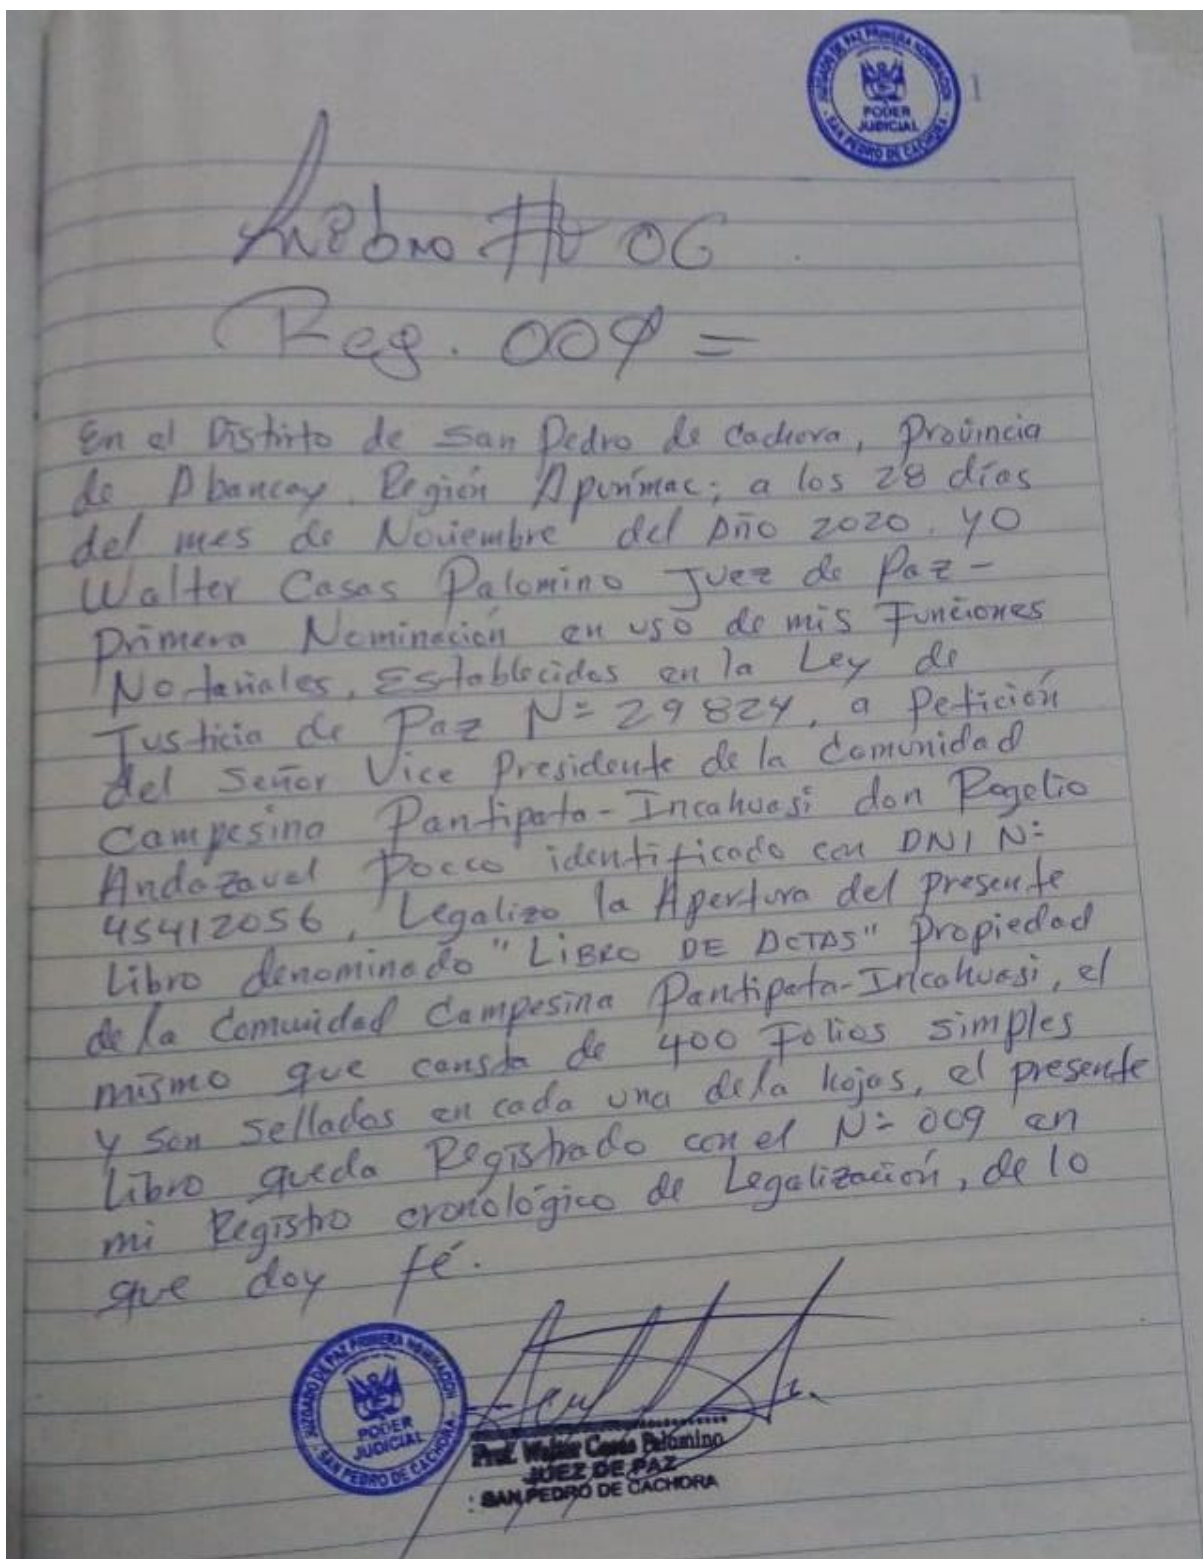 JUZGADO DE PAZ PRIMERA NOMINACION
PODER
JUDICIAL
SAN PEDRO DE CACHORA
1
Libro Nº 06
Reg. 009 =
En el Distirto de San Pedro de Cachora, Provincia
de Abancay, Región Apurímac; a los 28 días
del mes de Noviembre del Año 2020. YO
Walter Casas Palomino Juez de Paz -
Primera Nominación en uso de mis Funciones
Notariales, Establecidas en la Ley de
Justicia de Paz Nº 29824, a Petición
del Señor Vice Presidente de la Comunidad
Campesina Pantipata-Incahuasi don Rogelio
Andazaval Pocco identificado con DNI Nº
45412056, Legalizo la Apertura del presente
Libro denominado "LIBRO DE ACTAS" Propiedad
de la Comunidad Campesina Pantipata-Incahuasi, el
mismo que consta de 400 Folios simples
y son sellados en cada una de la hojas, el presente
Libro queda Registrado con el Nº 009 en
mi Registro cronológico de Legalización, de lo
que doy fé.
JUZGADO DE PAZ PRIMERA NOMINACION
PODER
JUDICIAL
SAN PEDRO DE CACHORA
Prof. Walter Casas Palomino
JUEZ DE PAZ
SAN PEDRO DE CACHORA